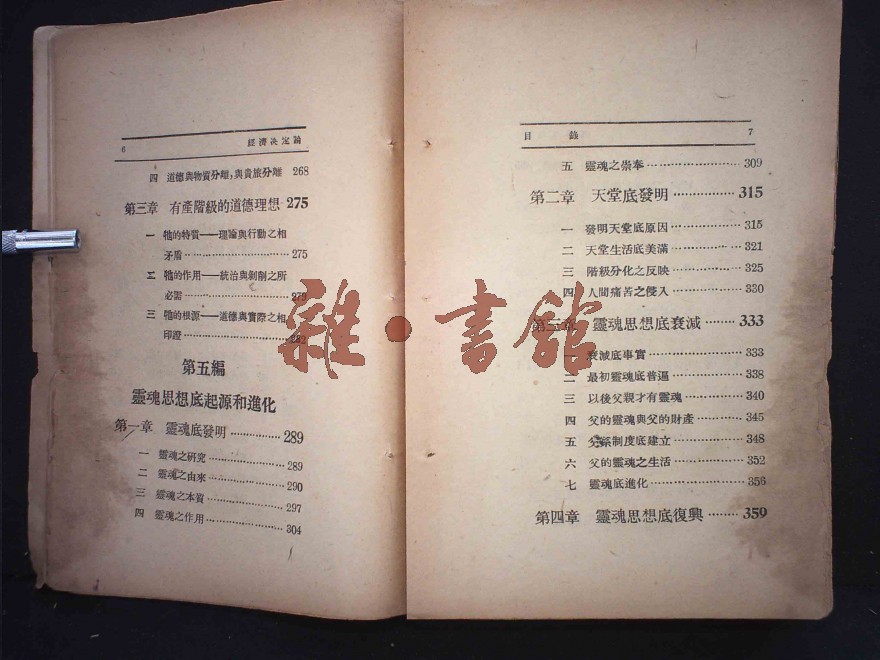 6 經濟決定論
四 道德與物質分離,與貴族分離 268
第三章 有產階級的道德理想 275
一 牠的特質——理論與行動之相
矛盾 275
二 牠的作用——統治與剝削之所
必需 279
三 牠的根源——道德與實際之相
印證 282
第五編
靈魂思想底起源和進化
第一章 靈魂底發明 289
一 靈魂之研究 289
二 靈魂之由來 290
三 靈魂之本質 297
四 靈魂之作用 304
目錄 7
五 靈魂之崇奉 309
第二章 天堂底發明 315
一 發明天堂底原因 315
二 天堂生活底美滿 321
三 階級分化之反映 325
四 人間痛苦之侵入 330
第三章 靈魂思想底衰減 333
一 衰減底事實 333
二 最初靈魂底普遍 338
三 以後父親才有靈魂 340
四 父的靈魂與父的財產 345
五 父系制度底建立 348
六 父的靈魂之生活 352
七 靈魂底進化 356
第四章 靈魂思想底復興 359
雜·書館